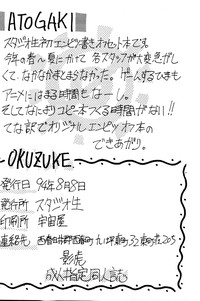 ATOGAKI
スタジオ生初エンピツ書きオフセット本です。
今年の春〜夏にかけて 各スタッフが大変忙が
しくて、なかなかまとまらなかった。ゲームするひまも
アニメにはまる時間もなーし。
そしてなによりコピー本つくる時間がない!!
てな訳でオリジナルエンピツオフ本の
できあがり。
OKUZUKE
発行日 94年8月8日
発行所 スタジオ生
印刷所 宇宙屋
連絡先
影虎
成人指定同人誌